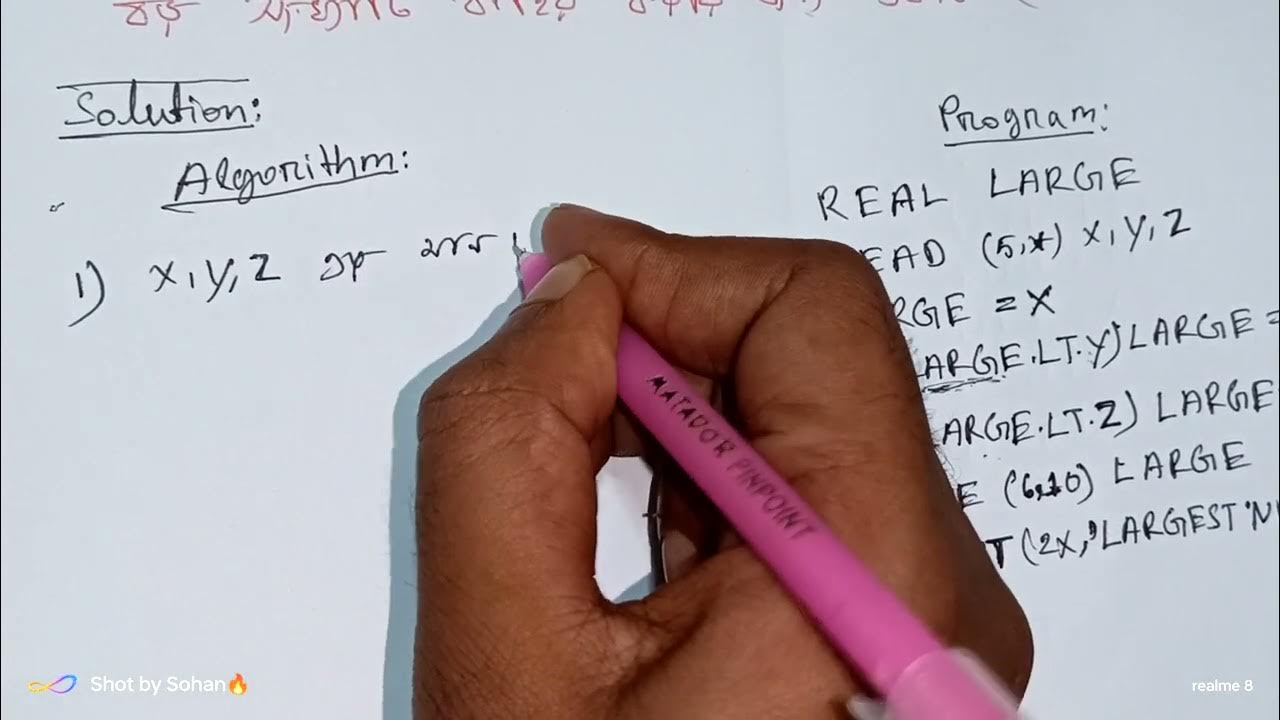 বড় সংখ্যাটি বাহির
Solution:
Algorithm:
1) X, Y, Z এর মান
Program:
REAL LARGE
EAD (5,*) X, Y, Z
RGE = X
ARGE.LT.Y) LARGE =
ARGE.LT.Z) LARGE
E (6,10) LARGE
T (2X, 'LARGEST N
MATADOR PINPOINT
Shot by Sohan🔥
realme 8